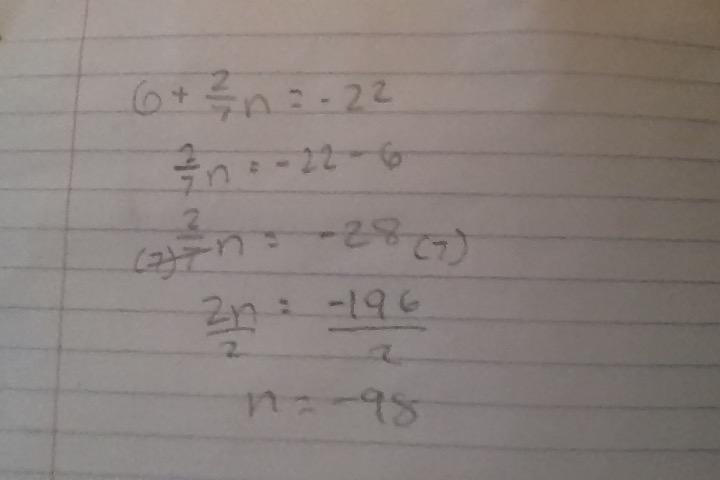 6 + 2/7 n = -22
2/7 n = -22 - 6
(7) 2/7 n = -28 (7)
2n/2 = -196/2
n = -98